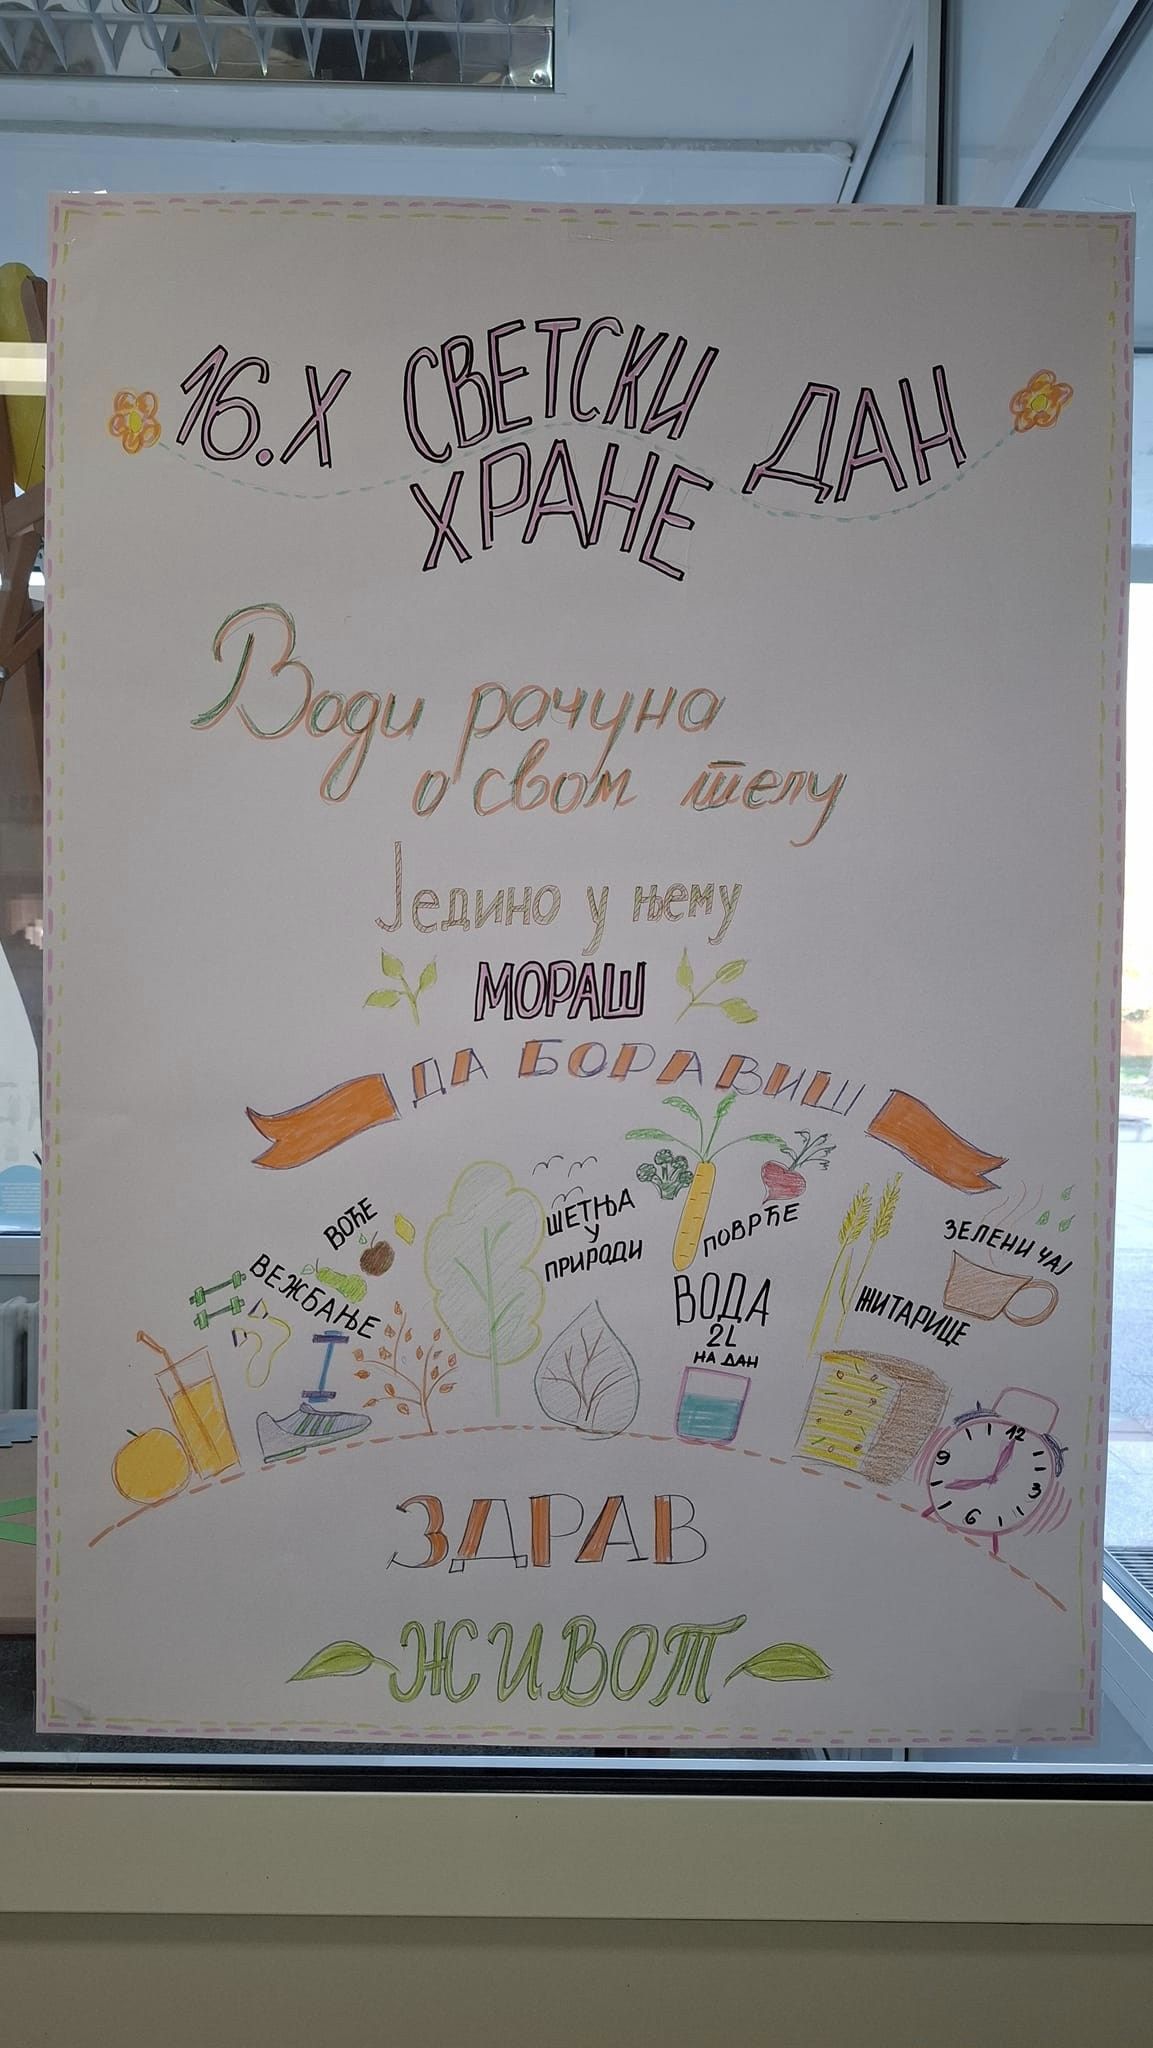 16.X СВЕТСКИ ДАН
ХРАНЕ
Води рачуна
о свом телу
Једино у њему
МОРАШ
ДА БОРАВИШ
ВОЋЕ
ВЕЖБАЊЕ
ШЕТЊА
У
ПРИРОДИ
ПОВРЋЕ
ВОДА
2L
НА ДАН
ЖИТАРИЦЕ
ЗЕЛЕНИ ЧАЈ
12
9
3
6
ЗДРАВ
ЖИВОТ